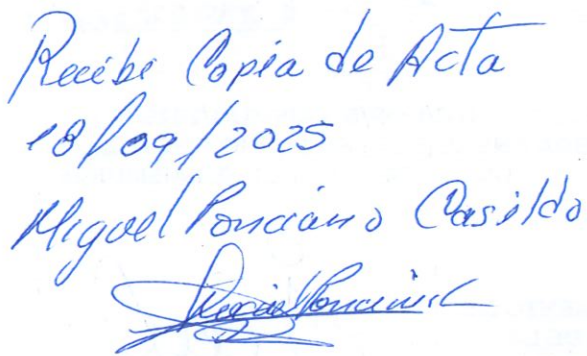 Recibi Copia de Acta
18/09/2025
Miguel Ponciano Casildo